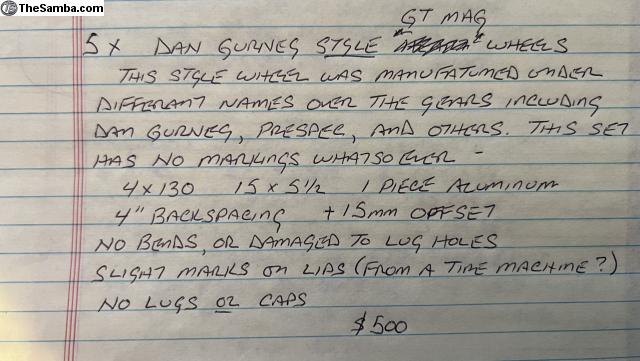 TheSamba.com
GT MAG
5 X DAN GURNEY STYLE WHEELS
THIS STYLE WHEEL WAS MANUFATURED UNDER
DIFFERANT NAMES OVER THE YEARS INCLUDING
DAN GURNEY, PRESPEC, AND OTHERS. THIS SET
HAS NO MARKINGS WHATSOEVER -
4 X 130 15 X 5 1/2 1 PIECE ALUMINUM
4" BACKSPACING +15mm OFFSET
NO BENDS, OR DAMAGED TO LUG HOLES
SLIGHT MARKS ON LIPS (FROM A TIRE MACHINE?)
NO LUGS OR CAPS
$500